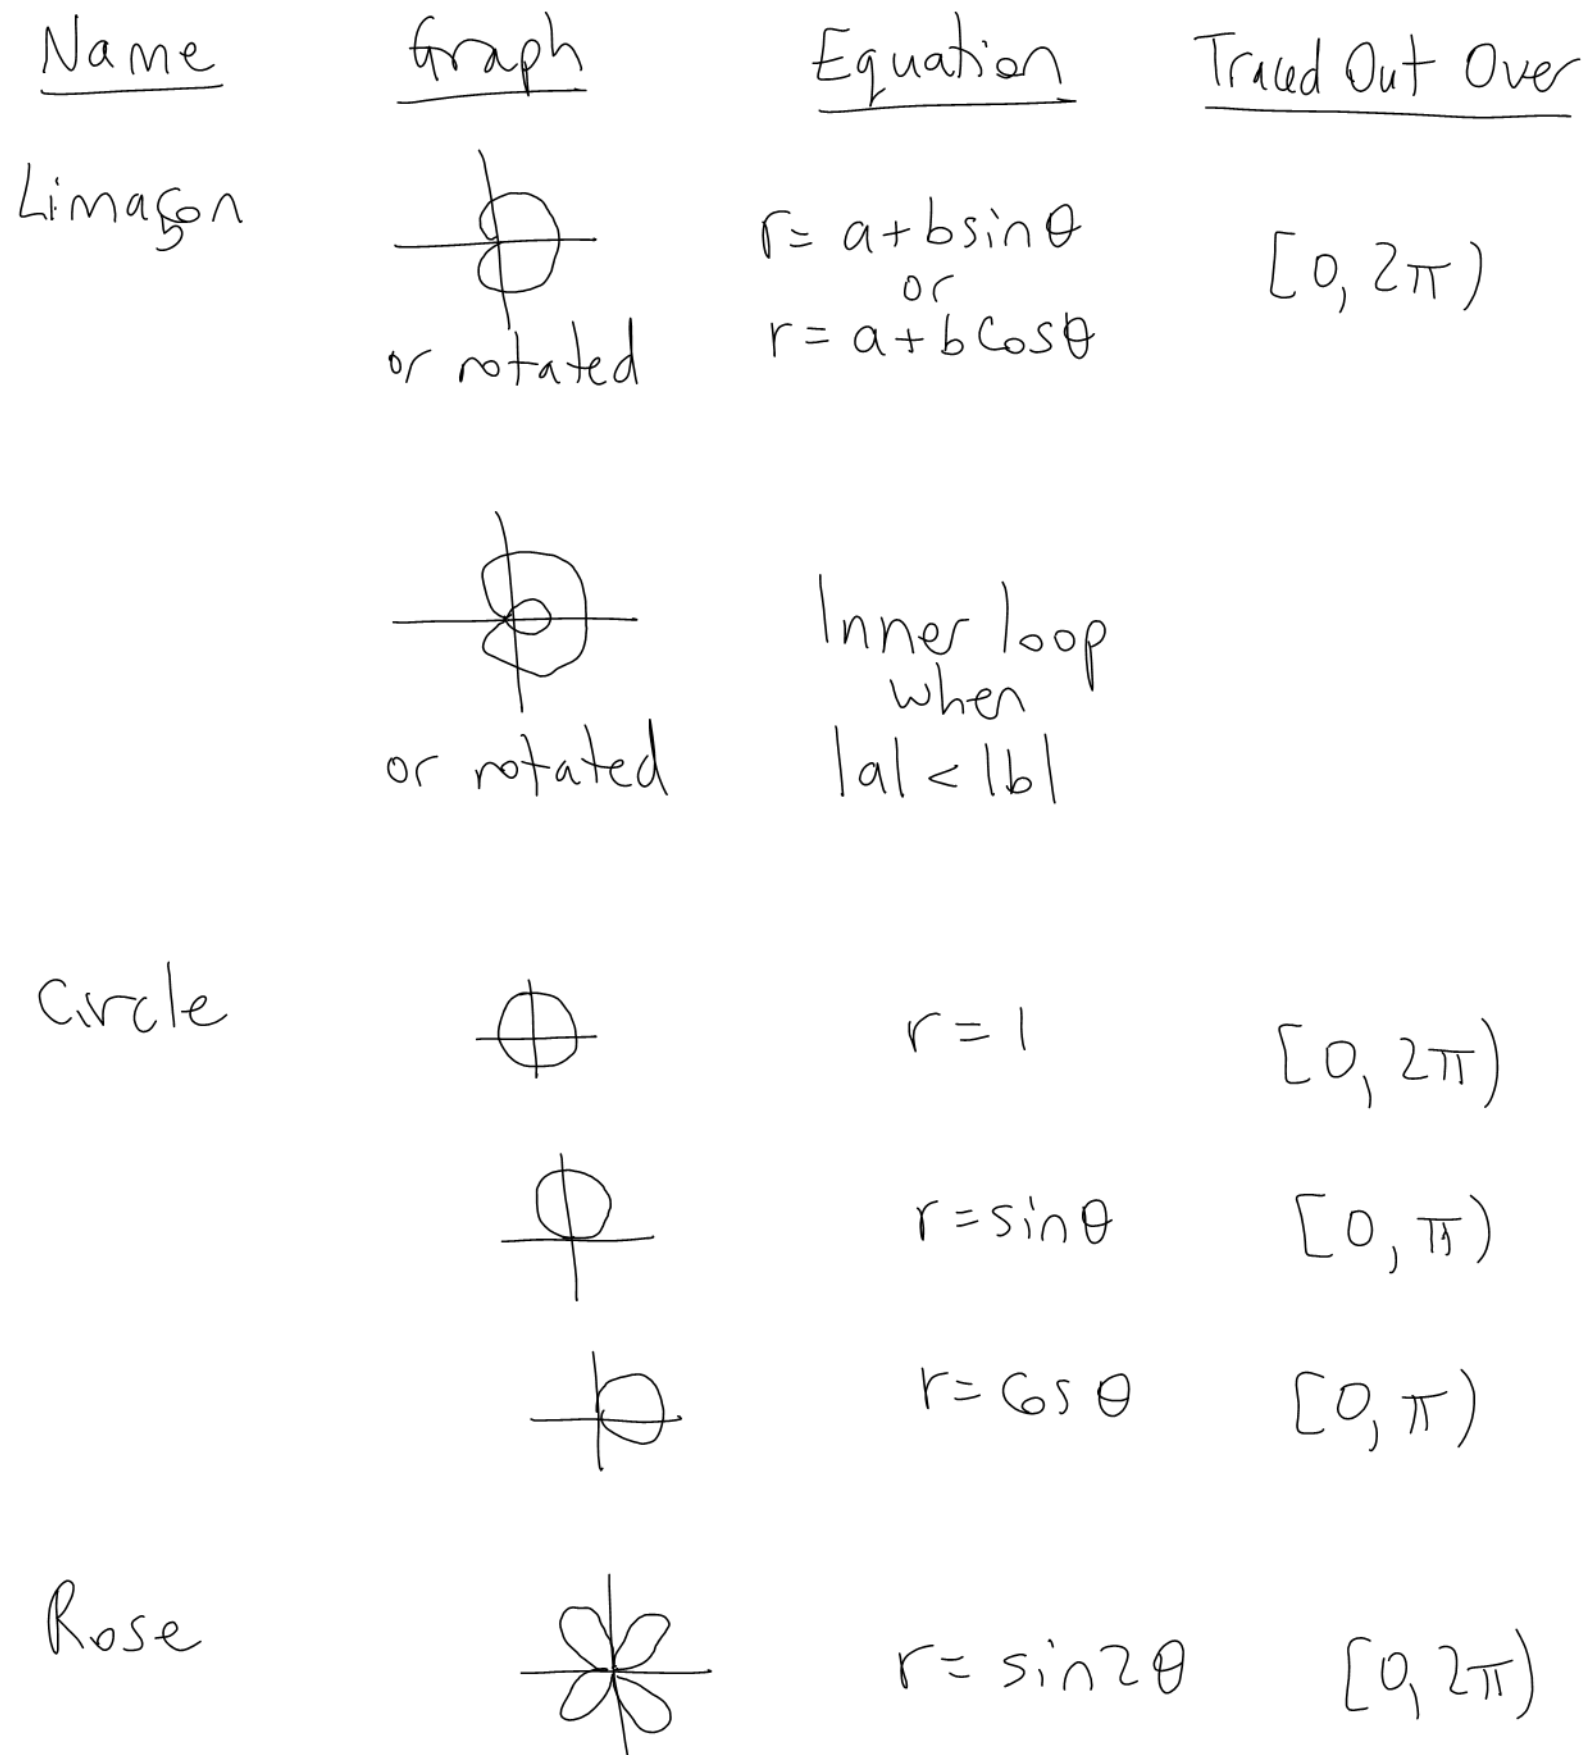 Name Graph Equation Traced Out Over
Limaçon r = a + b sin θ [0, 2π)
or
r = a + b cos θ
or rotated
Inner loop
when
or rotated |a| < |b|
Circle r = 1 [0, 2π)
r = sin θ [0, π)
r = cos θ [0, π)
Rose r = sin 2θ [0, 2π)